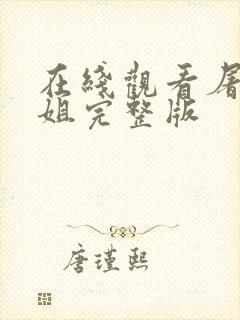 在綫觀看
姐完整版
唐瑾熙